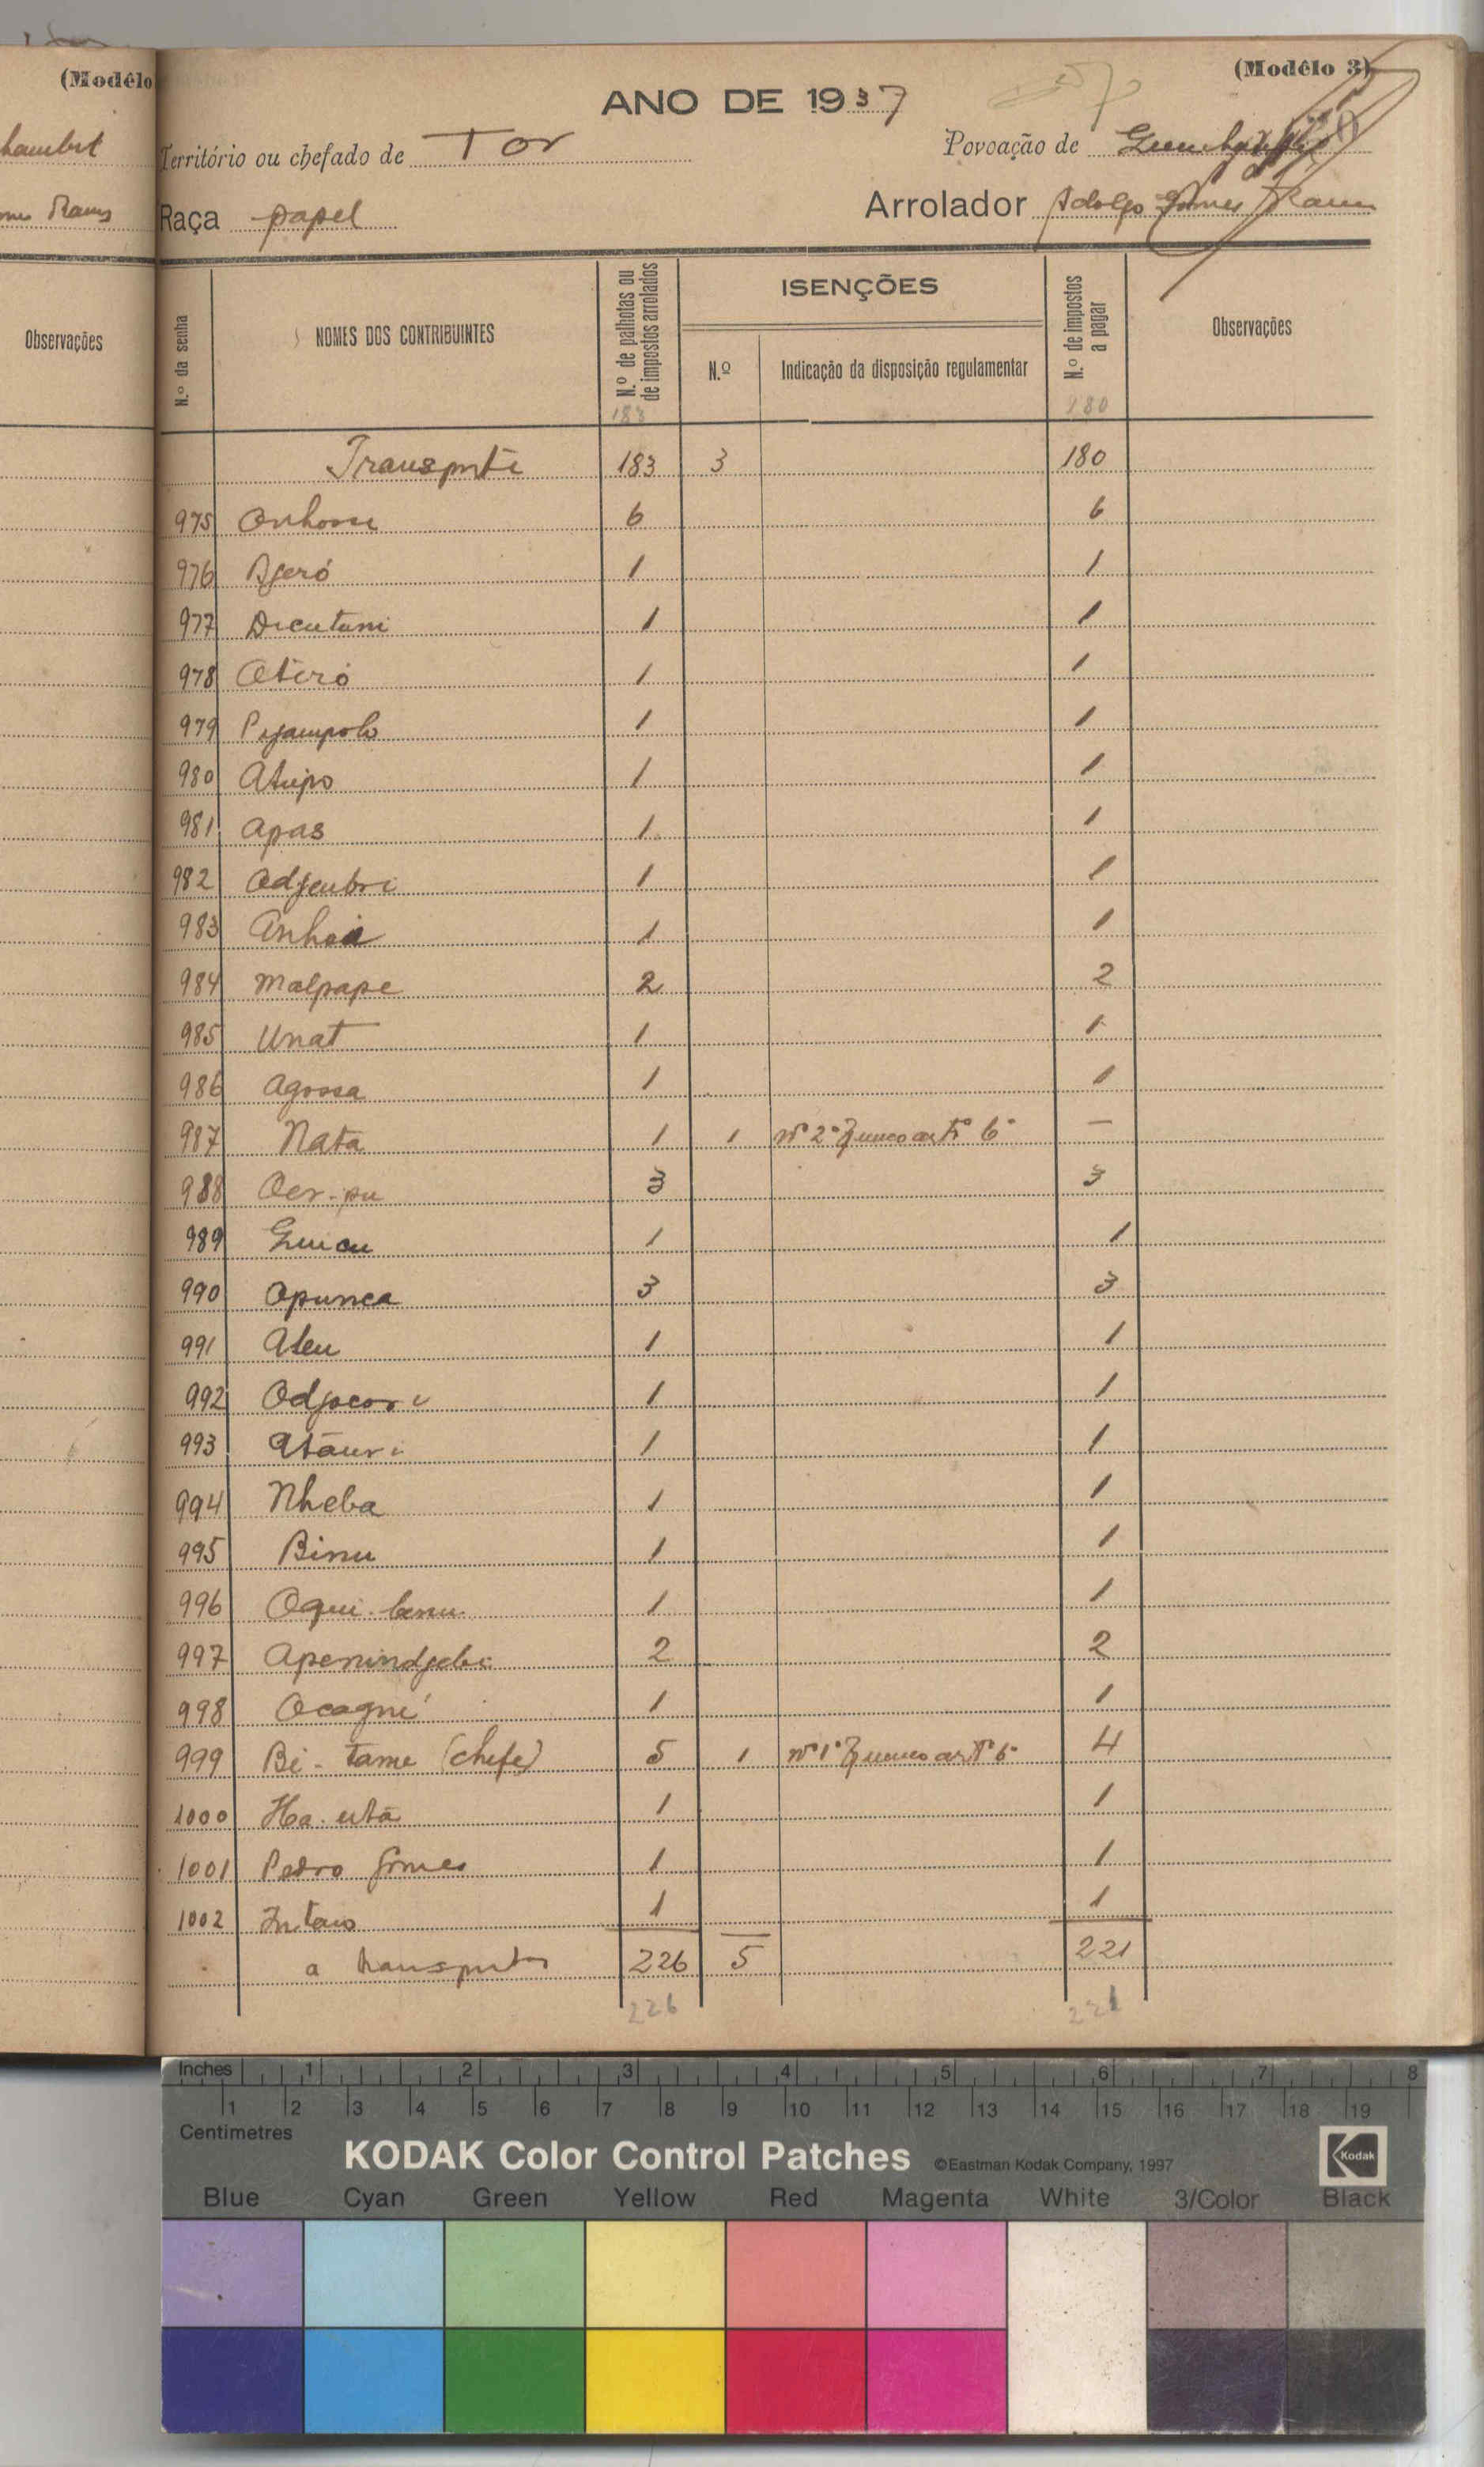 (Modêlo
Observações
(Modêlo 3)
ANO DE 1937
Território ou chefado de Tor
Povoação de
Raça papel
Arrolador Adolfo Gomes Ramos
N.º da senha
NOMES DOS CONTRIBUINTES
N.º de palhotas ou de impostos arrolados
ISENÇÕES
N.º
Indicação da disposição regulamentar
N.º de impostos a pagar
Observações
183 180
Transporte 183 3 180
975 Onhosse 6 6
976 Bjeró 1 1
977 Dicutami 1 1
978 Otéró 1 1
979 Pijampolo 1 1
980 Atupo 1 1
981 Apas 1 1
982 Odjeubri 1 1
983 1 1
984 Malpape 2 2
985 Unat 1 1
986 Agossa 1 1
987 Nata 1 1 nº 2º § unico artº 6º —
988 3 3
989 1 1
990 Opunca 3 3
991 Ateu 1 1
992 Odjocori 1 1
993 Atauri 1 1
994 Nheba 1 1
995 Binu 1 1
996 Oqui 1 1
997 Apenindjebi 2 2
998 Ocagné 1 1
999 Bi-tame (chefe) 5 1 nº 1º § unico artº 6º 4
1000 Ha-utã 1 1
1001 Pedro Gomes 1 1
1002 1 1
a transportar 226 5 221
226 221
Inches 1 2 3 4 5 6 7 8
1 2 3 4 5 6 7 8 9 10 11 12 13 14 15 16 17 18 19
Centimetres
KODAK Color Control Patches ©Eastman Kodak Company, 1997 Kodak
Blue Cyan Green Yellow Red Magenta White 3/Color Black